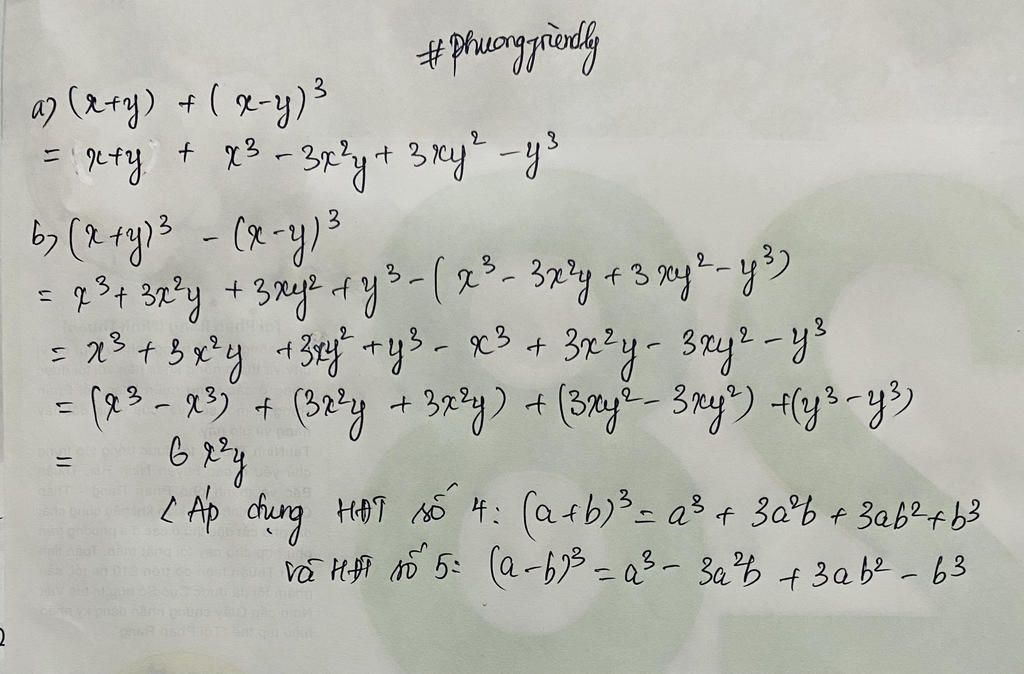 #phuongfriendly
a) (x+y) + (x-y)³
= x+y + x³ - 3x²y + 3xy² - y³
b) (x+y)³ - (x-y)³
= x³ + 3x²y + 3xy² + y³ - (x³ - 3x²y + 3xy² - y³)
= x³ + 3x²y + 3xy² + y³ - x³ + 3x²y - 3xy² - y³
= (x³ - x³) + (3x²y + 3x²y) + (3xy² - 3xy²) + (y³ - y³)
= 6x²y
( Áp dụng HĐT số 4: (a+b)³ = a³ + 3a²b + 3ab² + b³
và HĐT số 5: (a-b)³ = a³ - 3a²b + 3ab² - b³